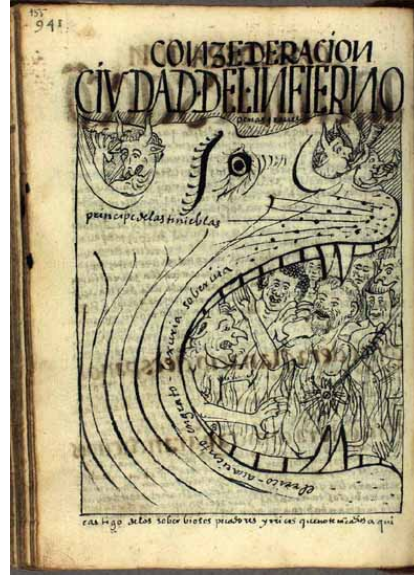 155
941
CONZEDERACION
CIVDAD·DEL·INFIERNO
penas graues
principe de las tinieblas
el rrico - auariento - yngrato - luxuria - soberuia
castigo de los soberbiosos pecadores y rricos que no temen a dios aqui